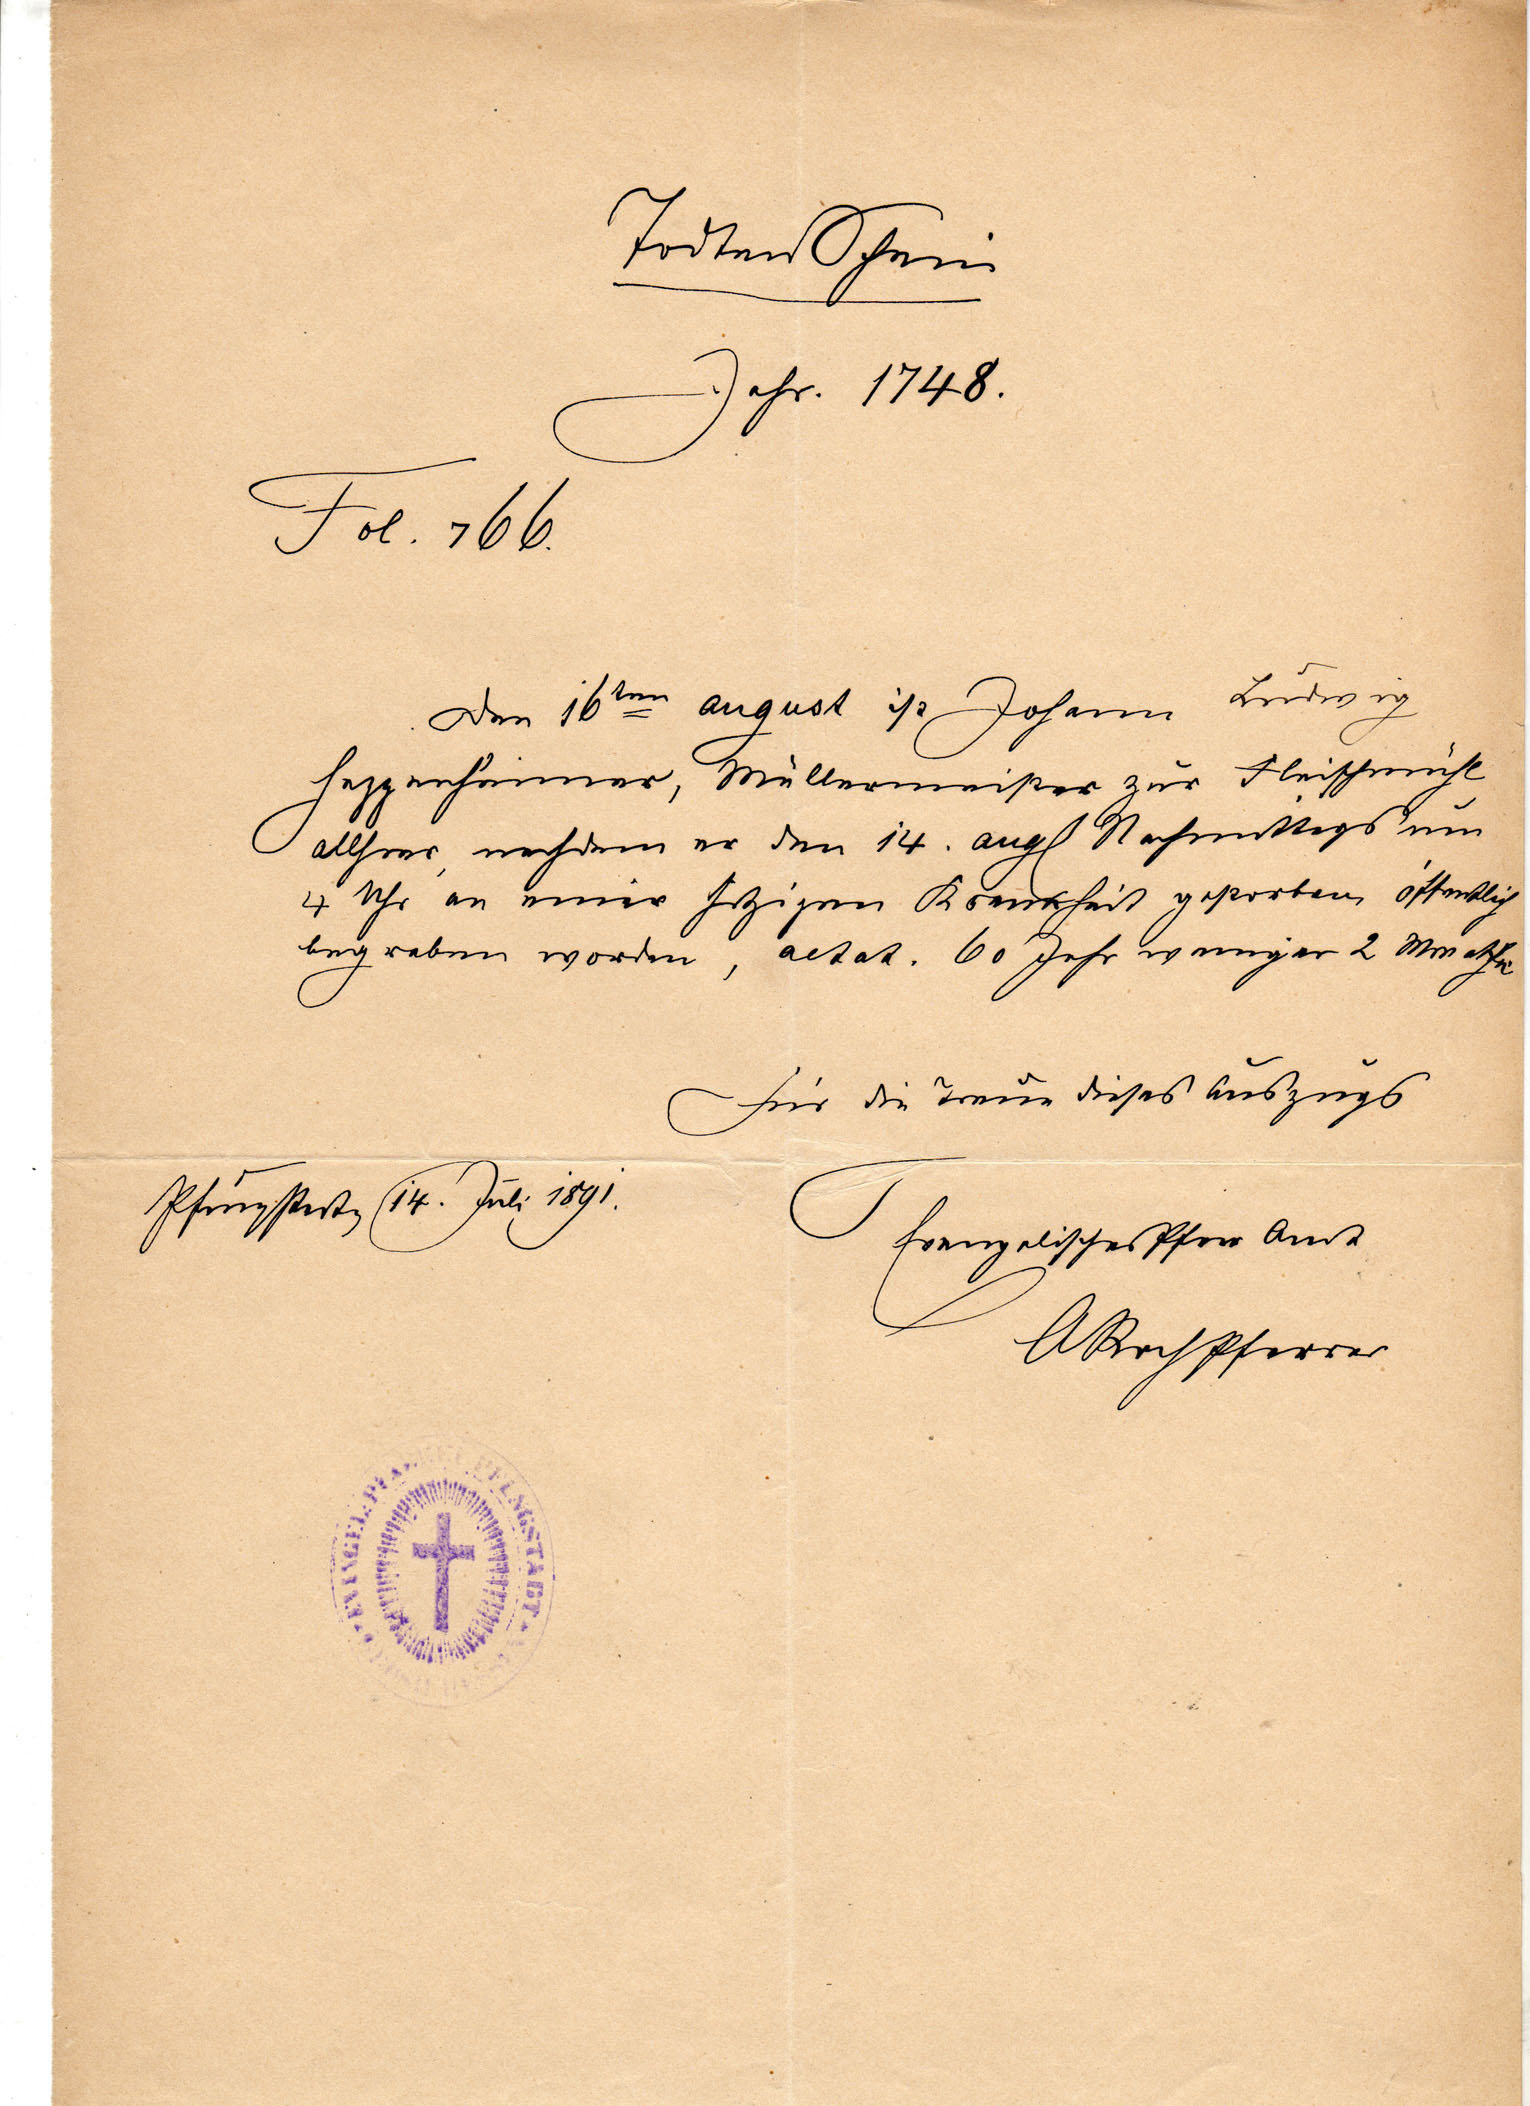 Todten Schein
Jahr. 1748.
Fol. 766.
Den 16ten august ist Johann Ludwig
Heppenheimer, Müllermeister zur Fleischmühl
allhier, nachdem er den 14. aug Nachmittags um
4 Uhr an einer hitzigen Krankheit gestorben öffentlich
begraben worden, aetat. 60 Jahr weniger 2 Monathe
Für die Treue dieses Auszugs
Pfungstadt, 14. Juli 1891.
Evangelisches Pfarr Amt
Koch Pfarrer
EVANGEL. PFUNGSTADT